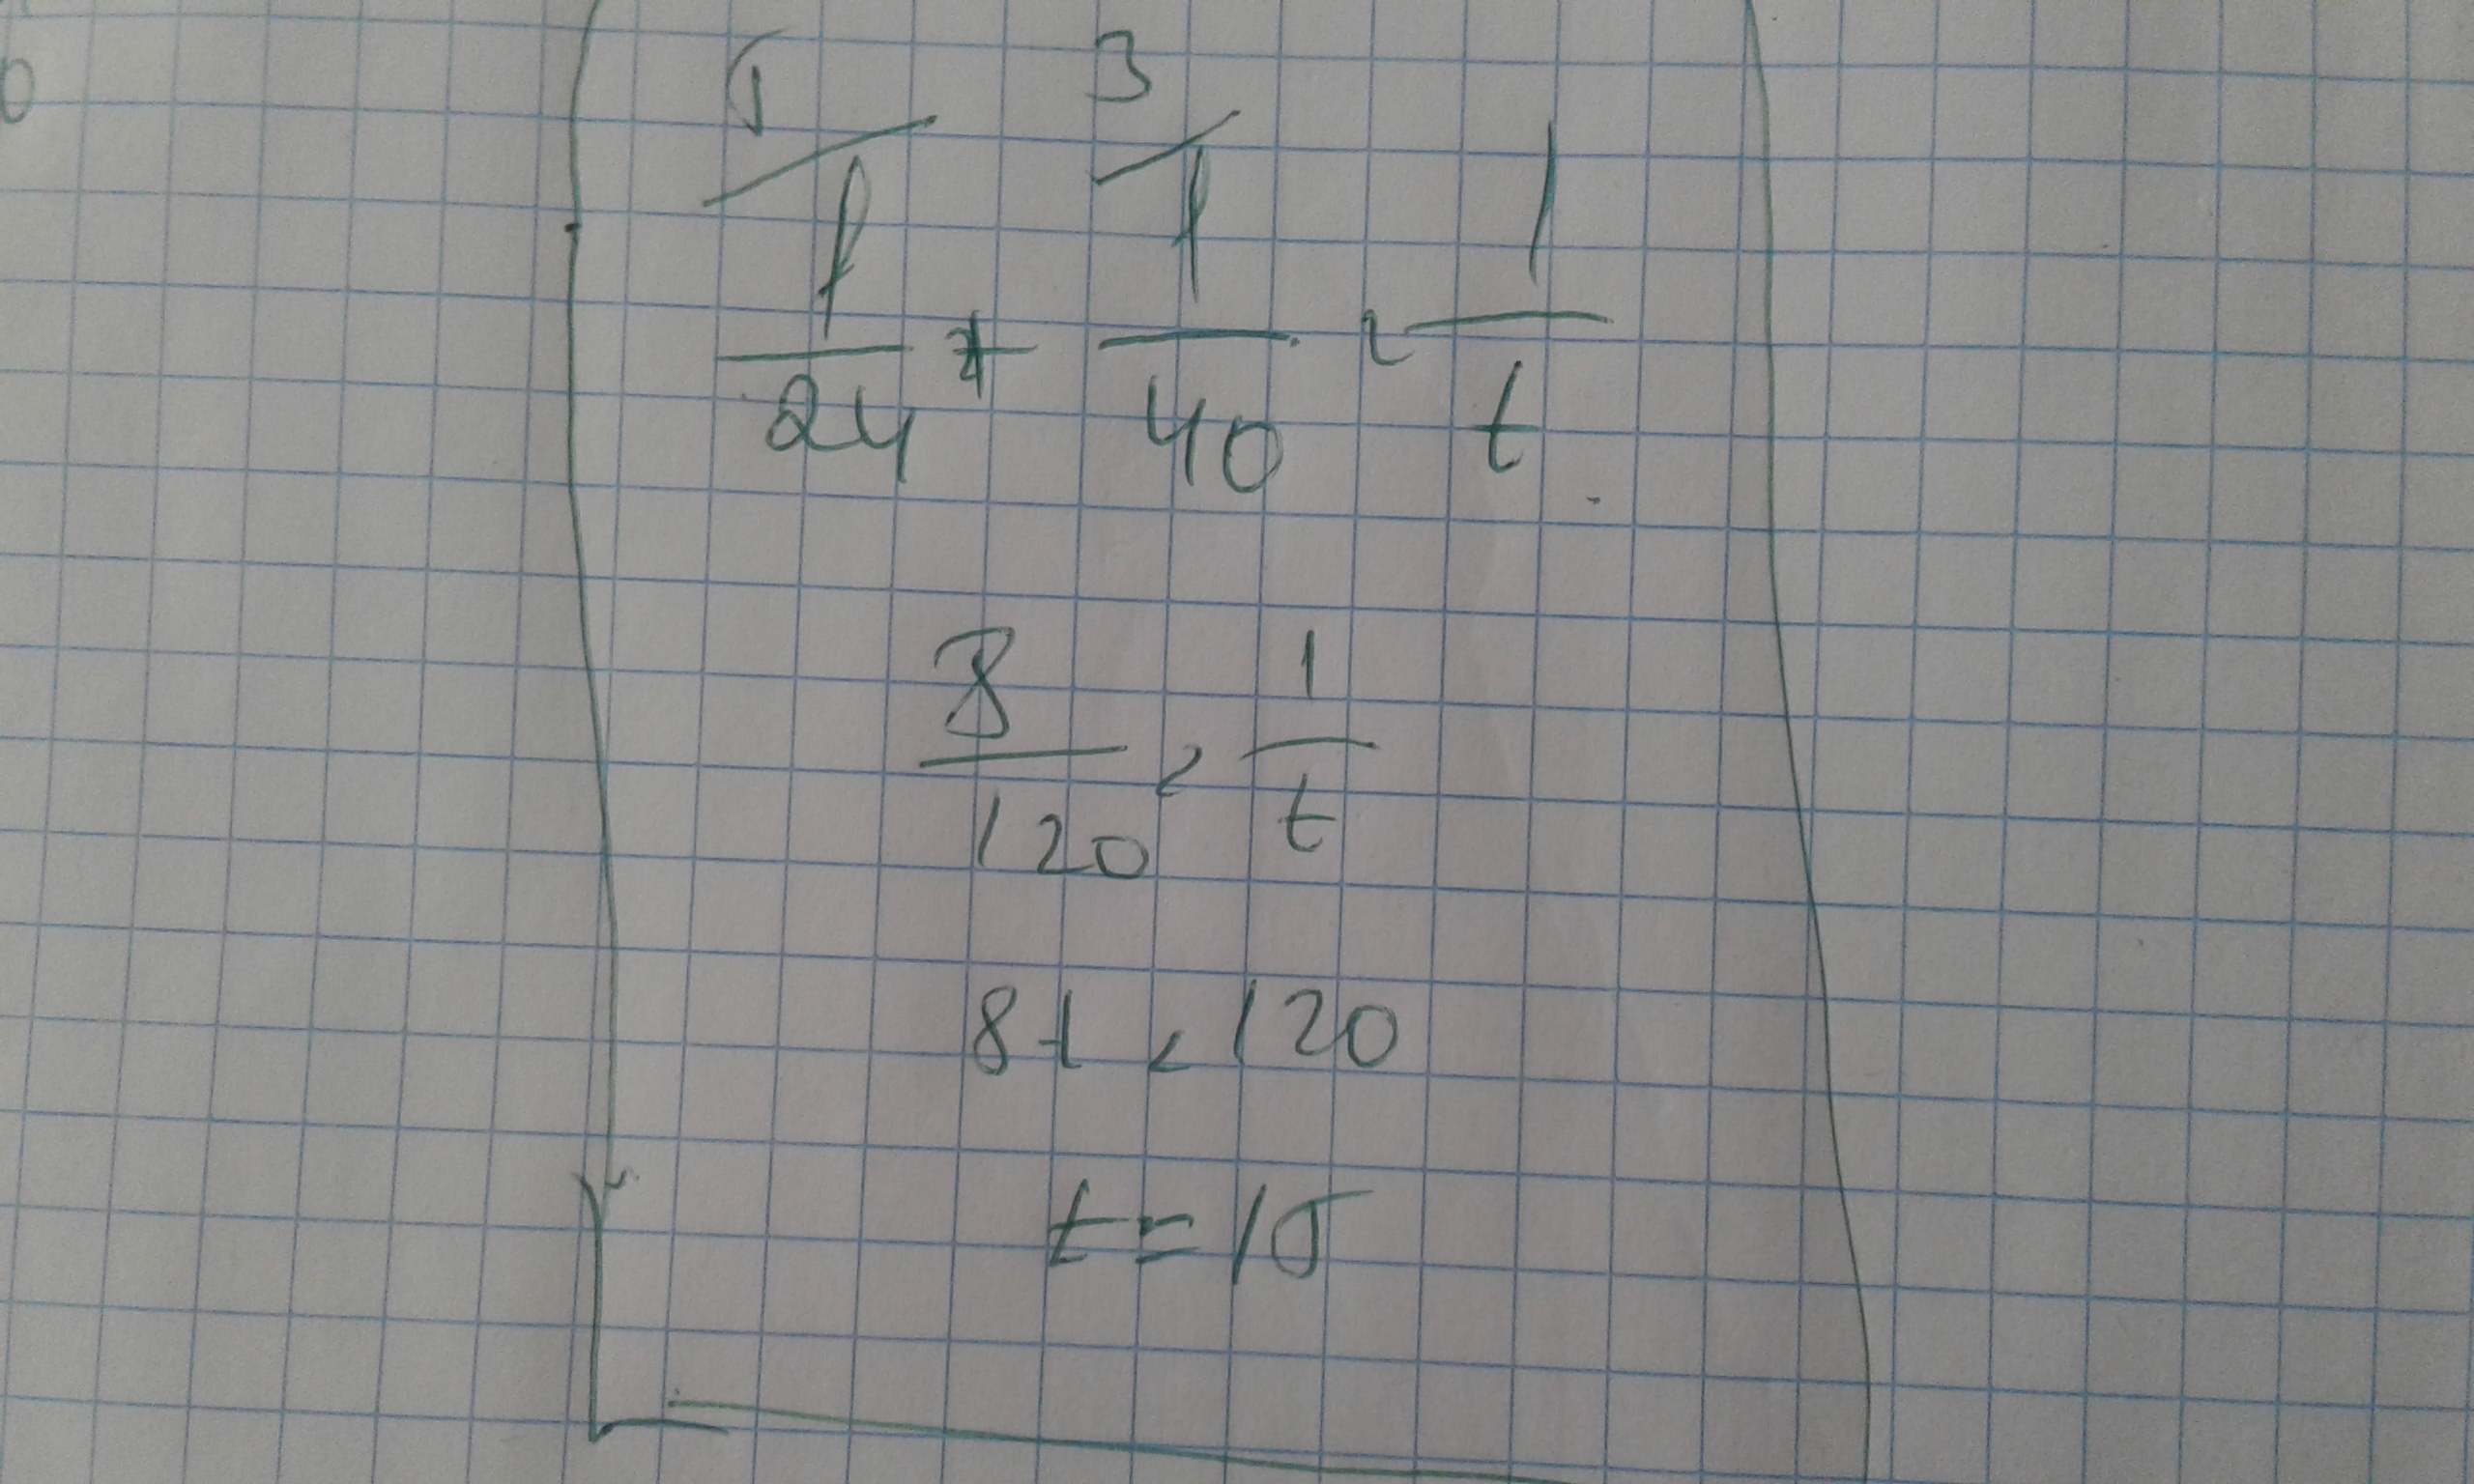 0
5 3
1/24 + 1/40 = 1/t
8/120 = 1/t
8t = 120
t = 15